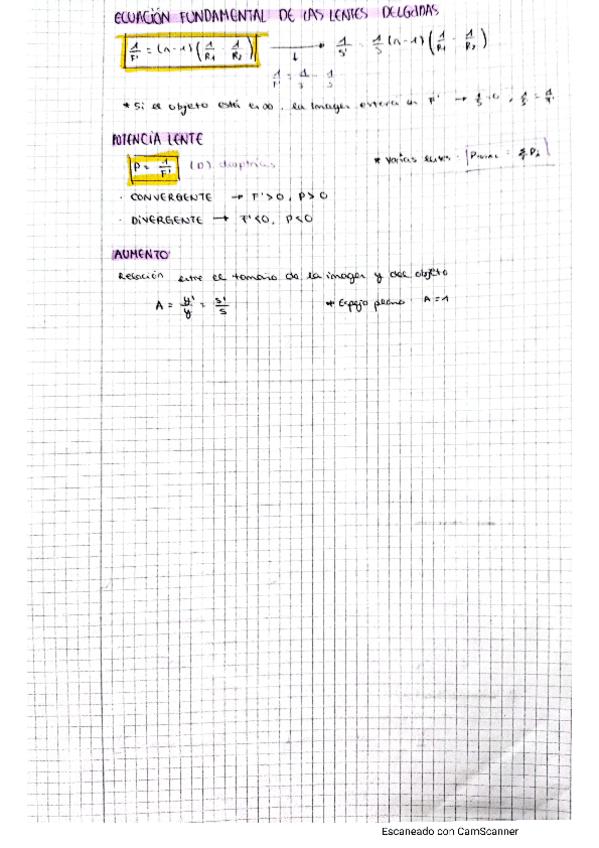 ECUACIÓN FUNDAMENTAL DE LAS LENTES DELGADAS
1/F' = (n-1)(1/R1 - 1/R2) → 1/s' - 1/s (n-1)(1/R1 - 1/R2)
↓
1/F' = 1/s' - 1/s
* Si el objeto está en ∞, la imagen estará en F' →
POTENCIA LENTE
P = 1/F' (D) dioptrías * varias lentes: Ptotal = ΣPi
· CONVERGENTE → F'>0, P>0
· DIVERGENTE → F'<0, P<0
AUMENTO
Relación entre el tamaño de la imagen y del objeto
A = y'/y = s'/s * Espejo plano: A=1
Escaneado con CamScanner